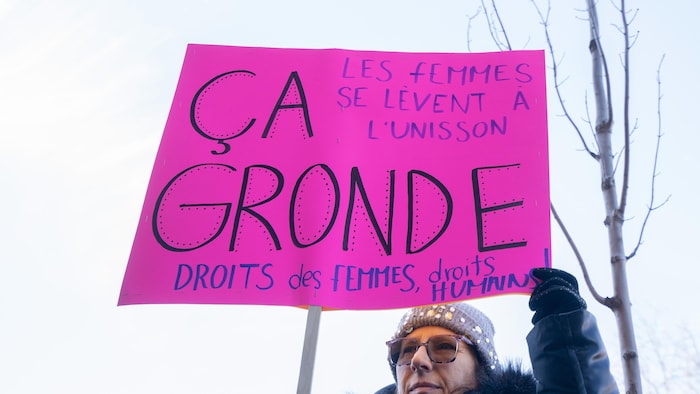 ÇA
GRONDE
LES FEMMES
SE LÈVENT À
L'UNISSON
DROITS des FEMMES, droits
HUMAINS!